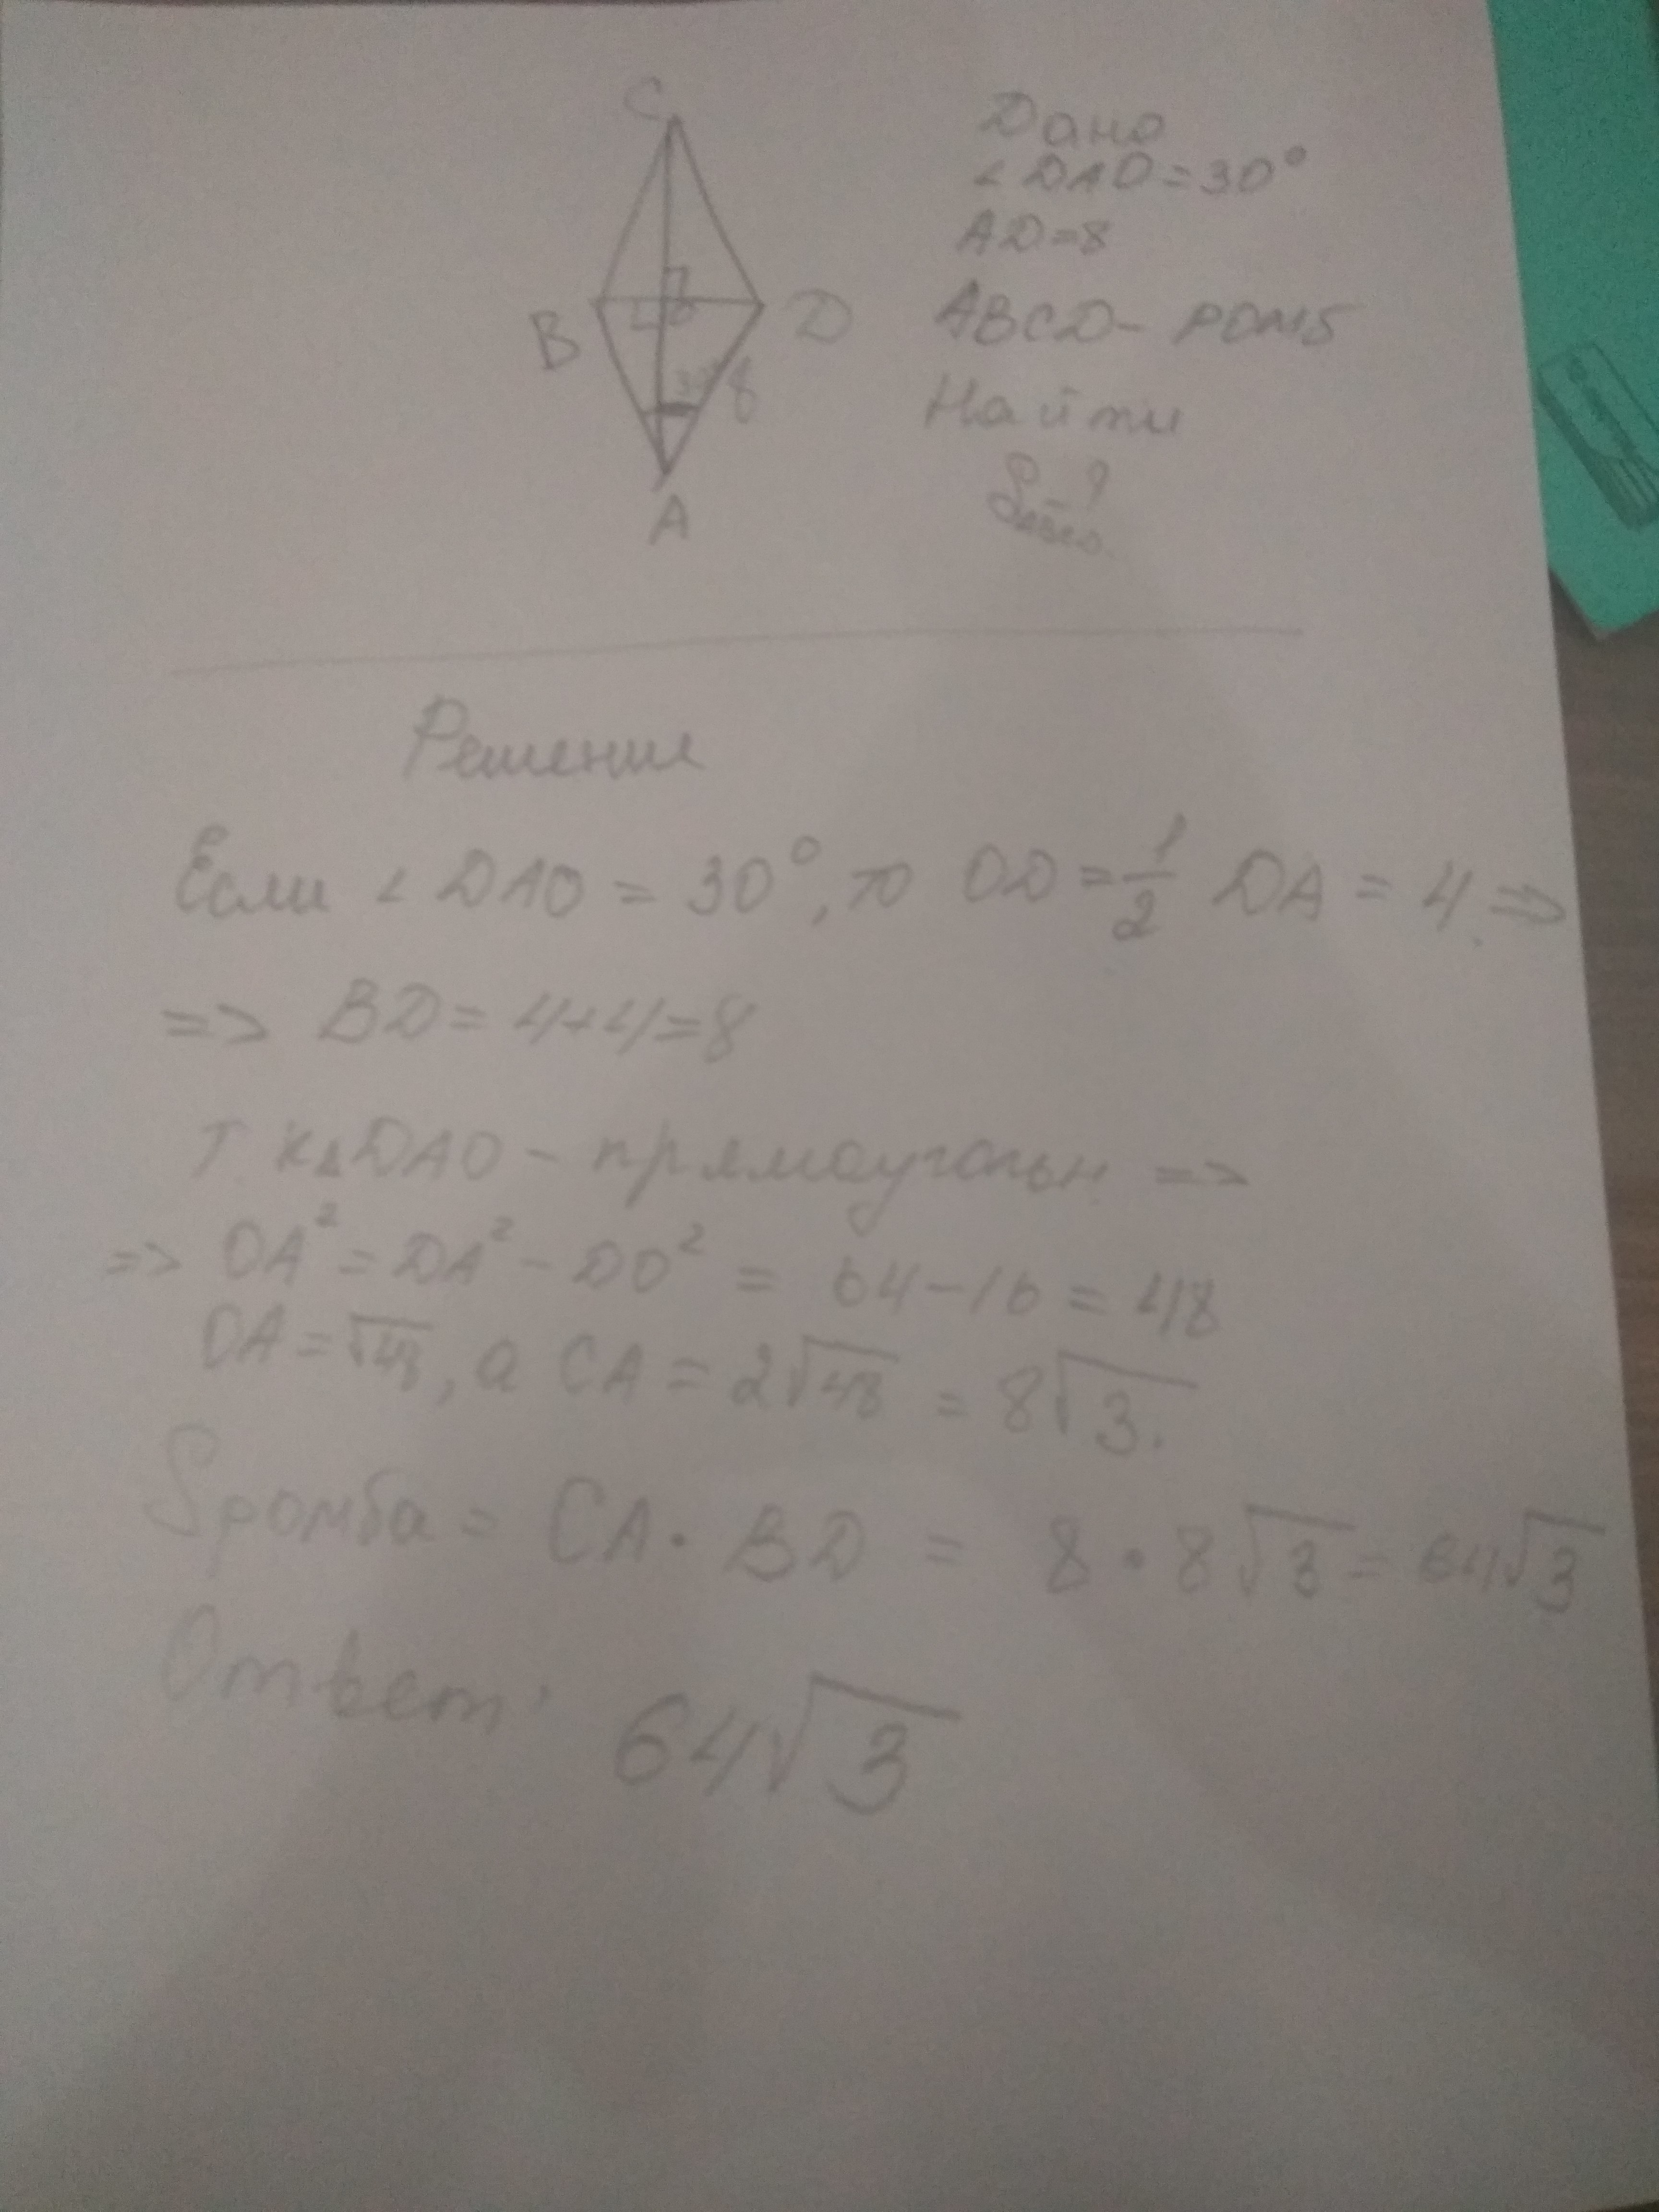 C
B
D
30°
8
A
Дано
∠DAO=30°
AD=8
ABCD- ромб
Найти
S ABCD - ?
Решение
Если ∠DAO = 30°, то OD = 1/2 DA = 4 =>
=> BD = 4+4=8
Т.к ∆DAO - прямоугольн. =>
=> OA² = DA² - DO² = 64-16 = 48
OA = √48, а CA = 2√48 = 8√3.
Sромба = CA · BD = 8 · 8√3 = 64√3
Ответ: 64√3